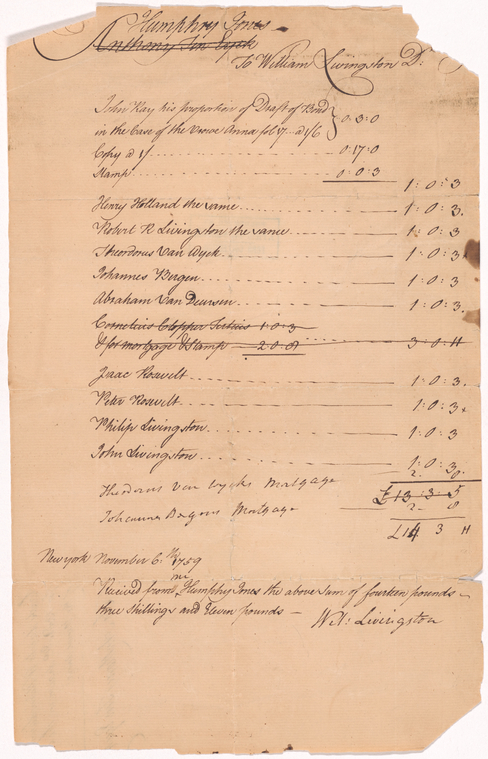 Humphry Jones
Anthony Ten Eyck
To William Livingston Dr.
John Kay his proportion of Draft of Bond
in the Case of the Vrowe Anna fol 17 .. a 1/6 0:3:0
Copy a 1/ 0:17:0
Stamp 0:0:3
1:0:3
Henry Holland the same 1:0:3.
Robert R Livingston the same 1:0:3
Theodorus Van Wyck 1:0:3
Johannes Bergen 1:0:3
Abraham Van Deursen 1:0:3.
Cornelius Clopper Tertius 1:0:3
& for mortgage & Stamp 2:0:8 3:0:11
Isaac Rosevelt 1:0:3.
Peter Rosevelt 1:0:3
Philip Livingston 1:0:3
John Livingston 1:0:3
Theodorus Van Wycks Mortgage 2:0:
£13:3:5
Johannes Bergens Mortgage 2 8
£14 3 11
New york November 6th 1759
Received from mr Humphry Jones the above sum of fourteen pounds
three shillings and Eleven pounds –
Wil: Livingston